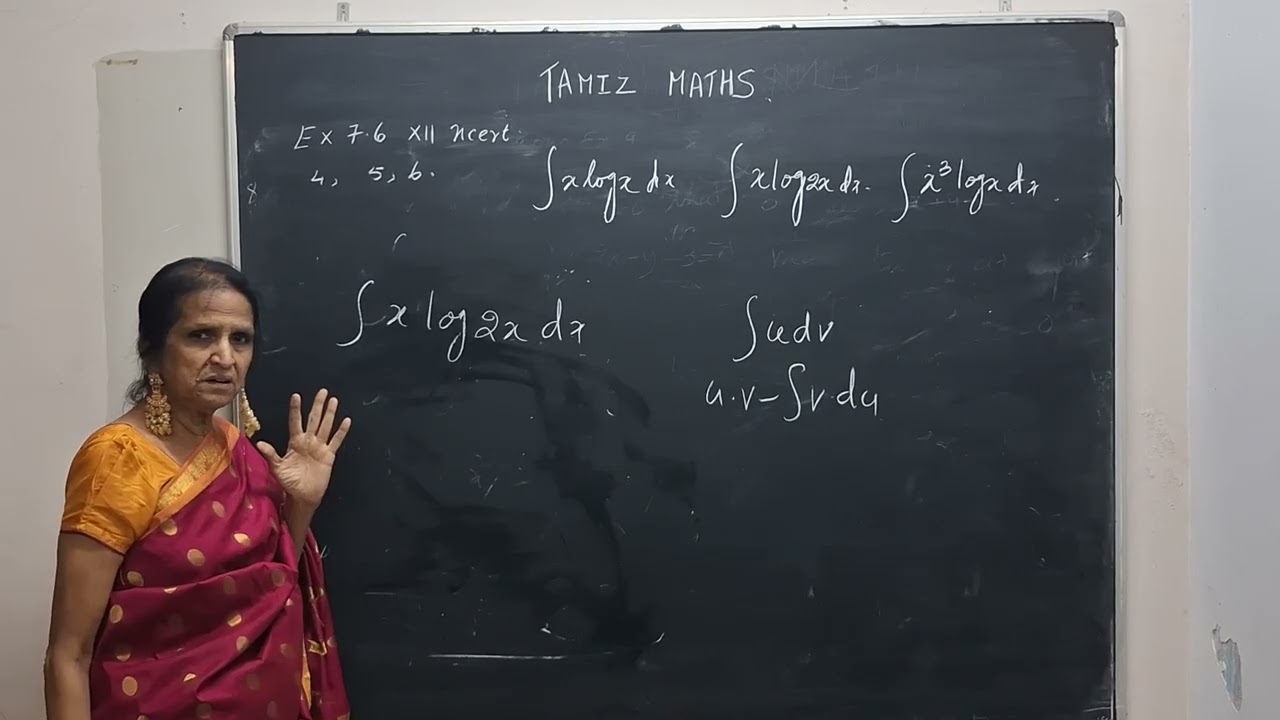 TAMIZ MATHS.
Ex 7.6 XII Ncert.
4, 5, 6.
∫x logx dx ∫x log2x dx. ∫x³ logx dx.
∫x log2x dx
∫u dv
u.v - ∫v.du